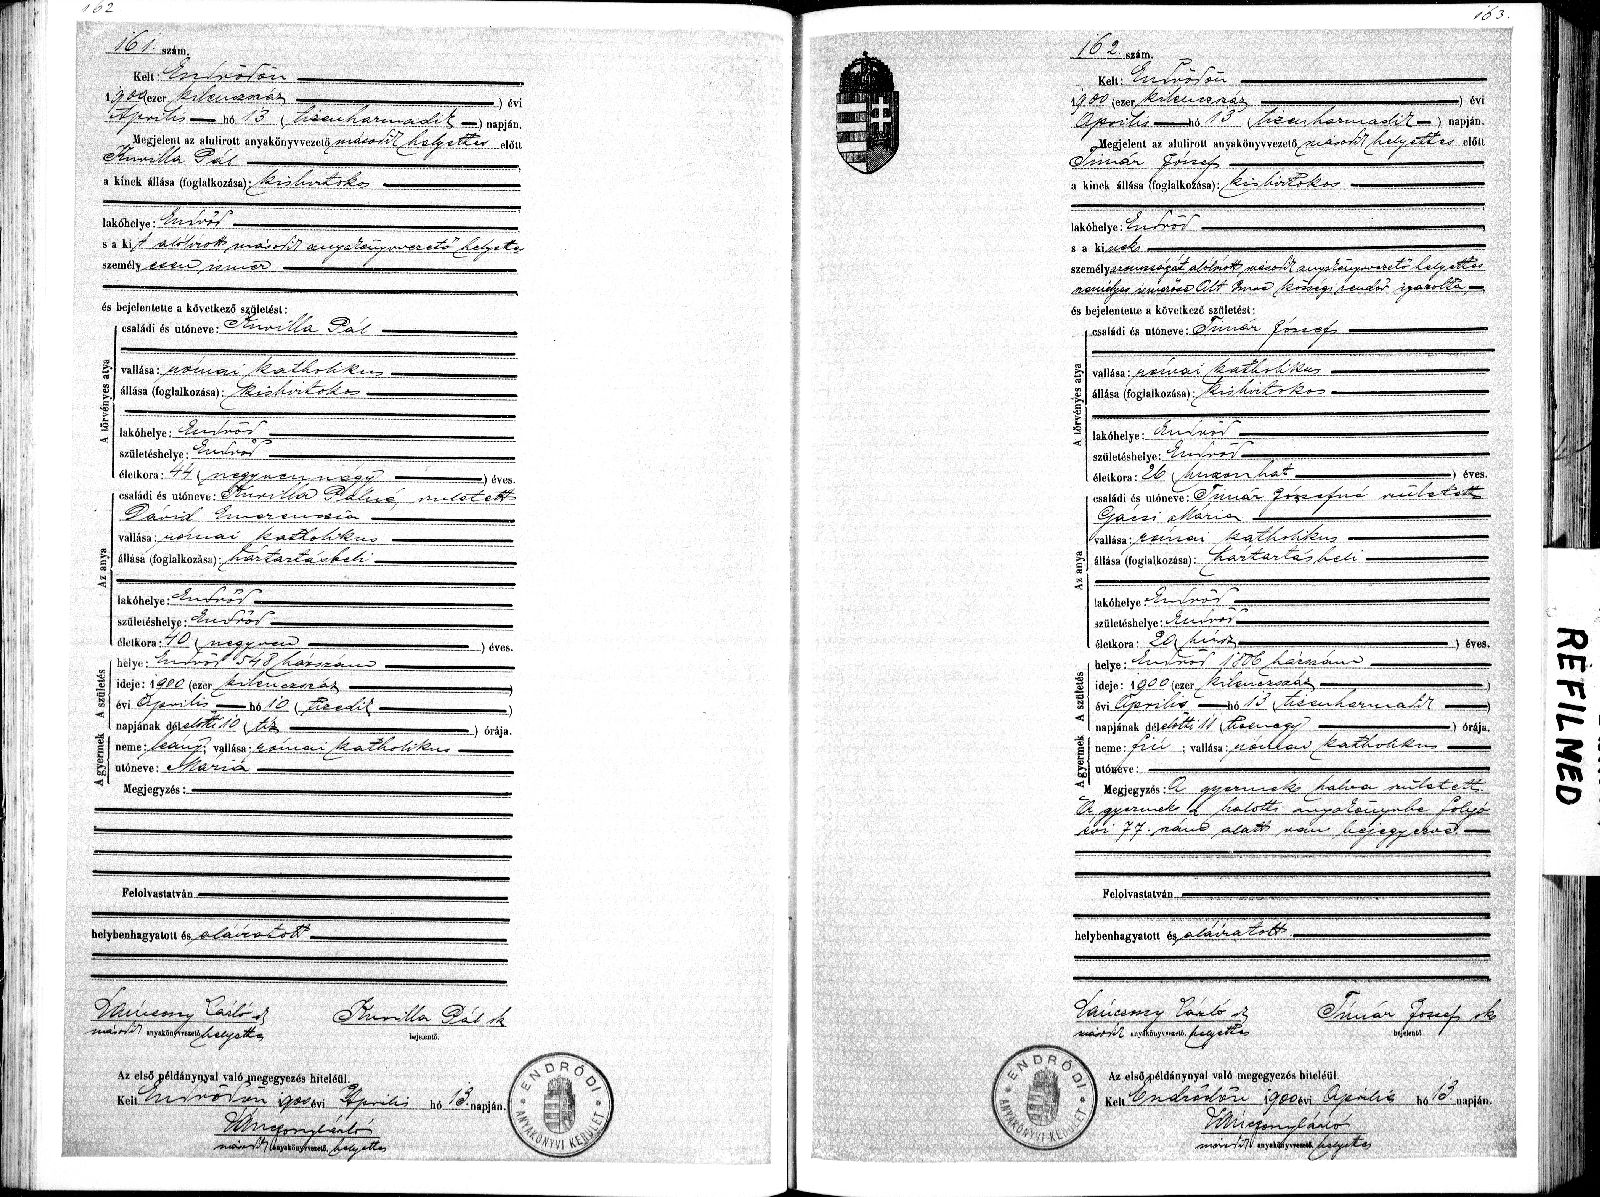 162
161. szám.
Kelt: Endrődön
1900 (ezer kilenczszáz) évi
Április hó 13 (tizenharmadik) napján.
Megjelent az alulirott anyakönyvvezető második helyettes előtt
Kurilla Pál
a kinek állása (foglalkozása): kisbirtokos
lakóhelye: Endrőd
s a kit alólirott második anyakönyvvezető helyettes
személyesen ismer
és bejelentette a következő születést:
A törvényes atya
családi és utóneve: Kurilla Pál
vallása: római katholikus
állása (foglalkozása): kisbirtokos
lakóhelye: Endrőd
születéshelye: Endrőd
életkora: 44 (negyvennégy) éves.
Az anya
családi és utóneve: Kurilla Pálné, született
Dávid Emerenczia
vallása: római katholikus
állása (foglalkozása): háztartásbeli
lakóhelye: Endrőd
születéshelye: Endrőd
életkora: 40 (negyven) éves.
A születés
helye: Endrőd 548 házszám
ideje: 1900 (ezer kilenczszáz)
évi Április hó 10 (tizedik)
napjának délelőtti 10 (tíz) órája.
A gyermek
neme: leány; vallása: római katholikus
utóneve: Mária
Megjegyzés:
Felolvastatván
helybenhagyatott és aláiratott
Kurilla Pál sk
második anyakönyvvezető, helyettes
bejelentő.
Az első példánynyal való megegyezés hiteléül.
Kelt Endrődön 1900 évi Április hó 13 napján.
második anyakönyvvezető, helyettes
ENDRŐDI ANYAKÖNYVI KERÜLET
163.
162. szám.
Kelt: Endrődön
1900 (ezer kilenczszáz) évi
Április hó 13 (tizenharmadik) napján.
Megjelent az alulirott anyakönyvvezető második helyettes előtt
Timár József
a kinek állása (foglalkozása): kisbirtokos
lakóhelye: Endrőd
s a kinek
személyazonosságát alólirott második anyakönyvvezető helyettes
személyes ismerőse Imre községi rendőr igazolta,
és bejelentette a következő születést:
A törvényes atya
családi és utóneve: Timár József
vallása: római katholikus
állása (foglalkozása): kisbirtokos
lakóhelye: Endrőd
születéshelye: Endrőd
életkora: 26 (huszonhat) éves.
Az anya
családi és utóneve: Timár Józsefné született
Gácsi Mária
vallása: római katholikus
állása (foglalkozása): háztartásbeli
lakóhelye: Endrőd
születéshelye: Endrőd
életkora: 20 (húsz) éves.
A születés
helye: Endrőd 1806 házszám
ideje: 1900 (ezer kilenczszáz)
évi Április hó 13 (tizenharmadik)
napjának délelőtti 11 (tizenegy) órája.
A gyermek
neme: fiú; vallása: római katholikus
utóneve:
Megjegyzés: A gyermek halva született.
Ezen gyermek a halotti anyakönyvbe folyó
évi 77. szám alatt van bejegyezve.
Felolvastatván
helybenhagyatott és aláiratott.
Timár József sk
második anyakönyvvezető, helyettes
bejelentő.
Az első példánynyal való megegyezés hiteléül.
Kelt Endrődön 1900 évi Április hó 13 napján.
második anyakönyvvezető, helyettes
ENDRŐDI ANYAKÖNYVI KERÜLET
REFILMED